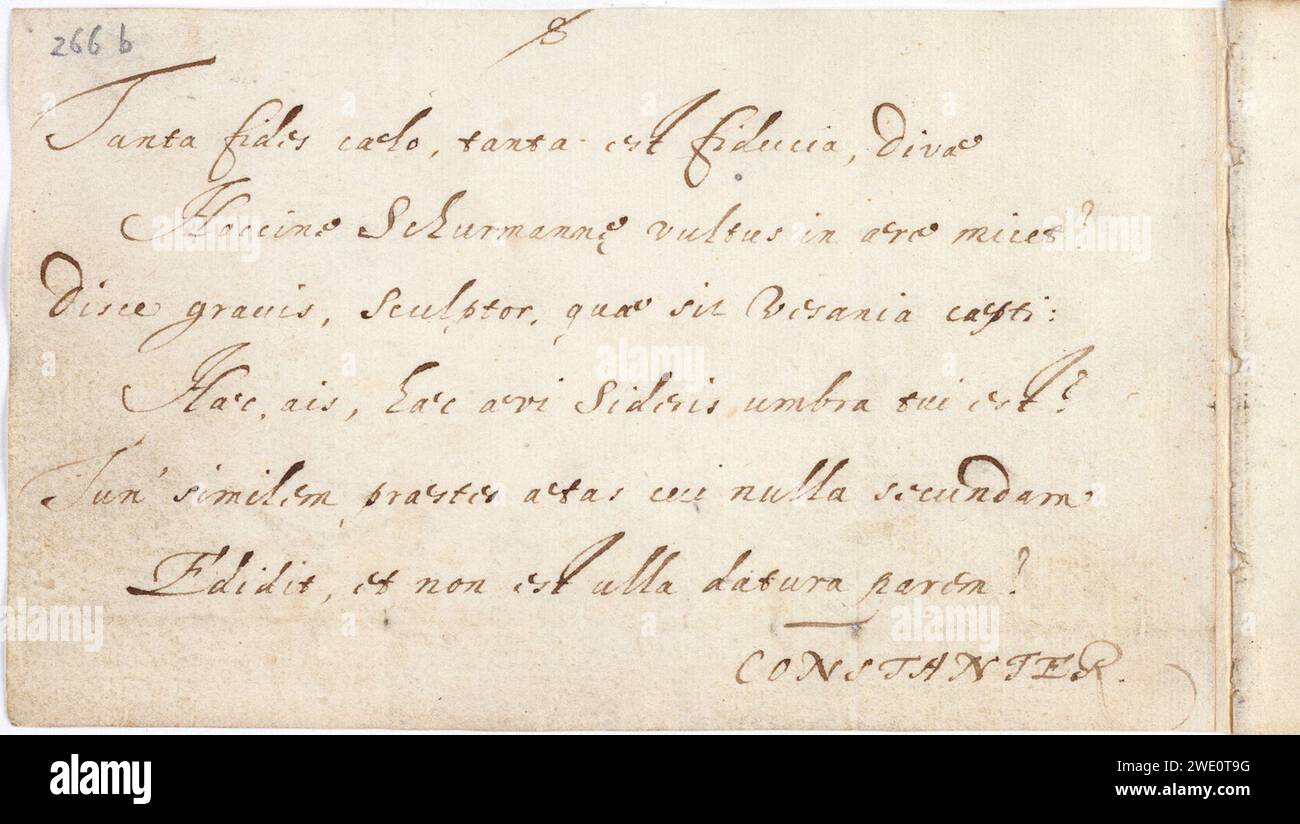 266 b
Tanta fides cælo, tanta est fiducia, Divæ
Hoccine Schurmannę vultus in ære micet?
Disce gravis, Sculptor, quæ sit Vesania cæpti:
Hæc, ais, hæc ævi Sideris umbra tui est?
Tun' similem præstes ætas cui nulla secundam
Edidit, et non est ulla datura parem?
CONSTANTER.
alamy
Image ID: 2WE0T9G
www.alamy.com